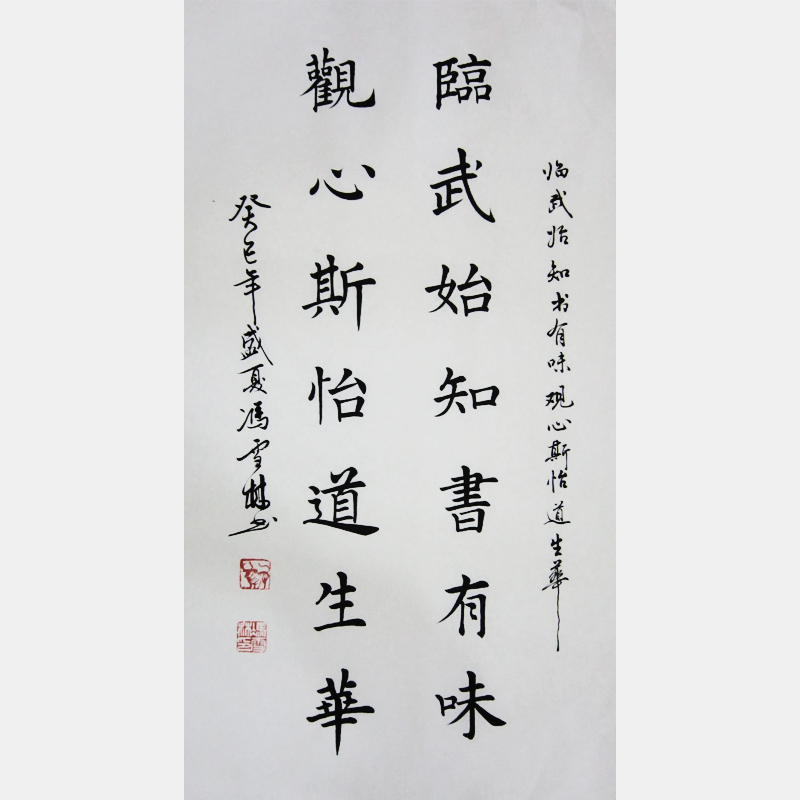 临武始知书有味观心斯怡道生华
臨武始知書有味
觀心斯怡道生華
癸巳年盛夏馮雪林书